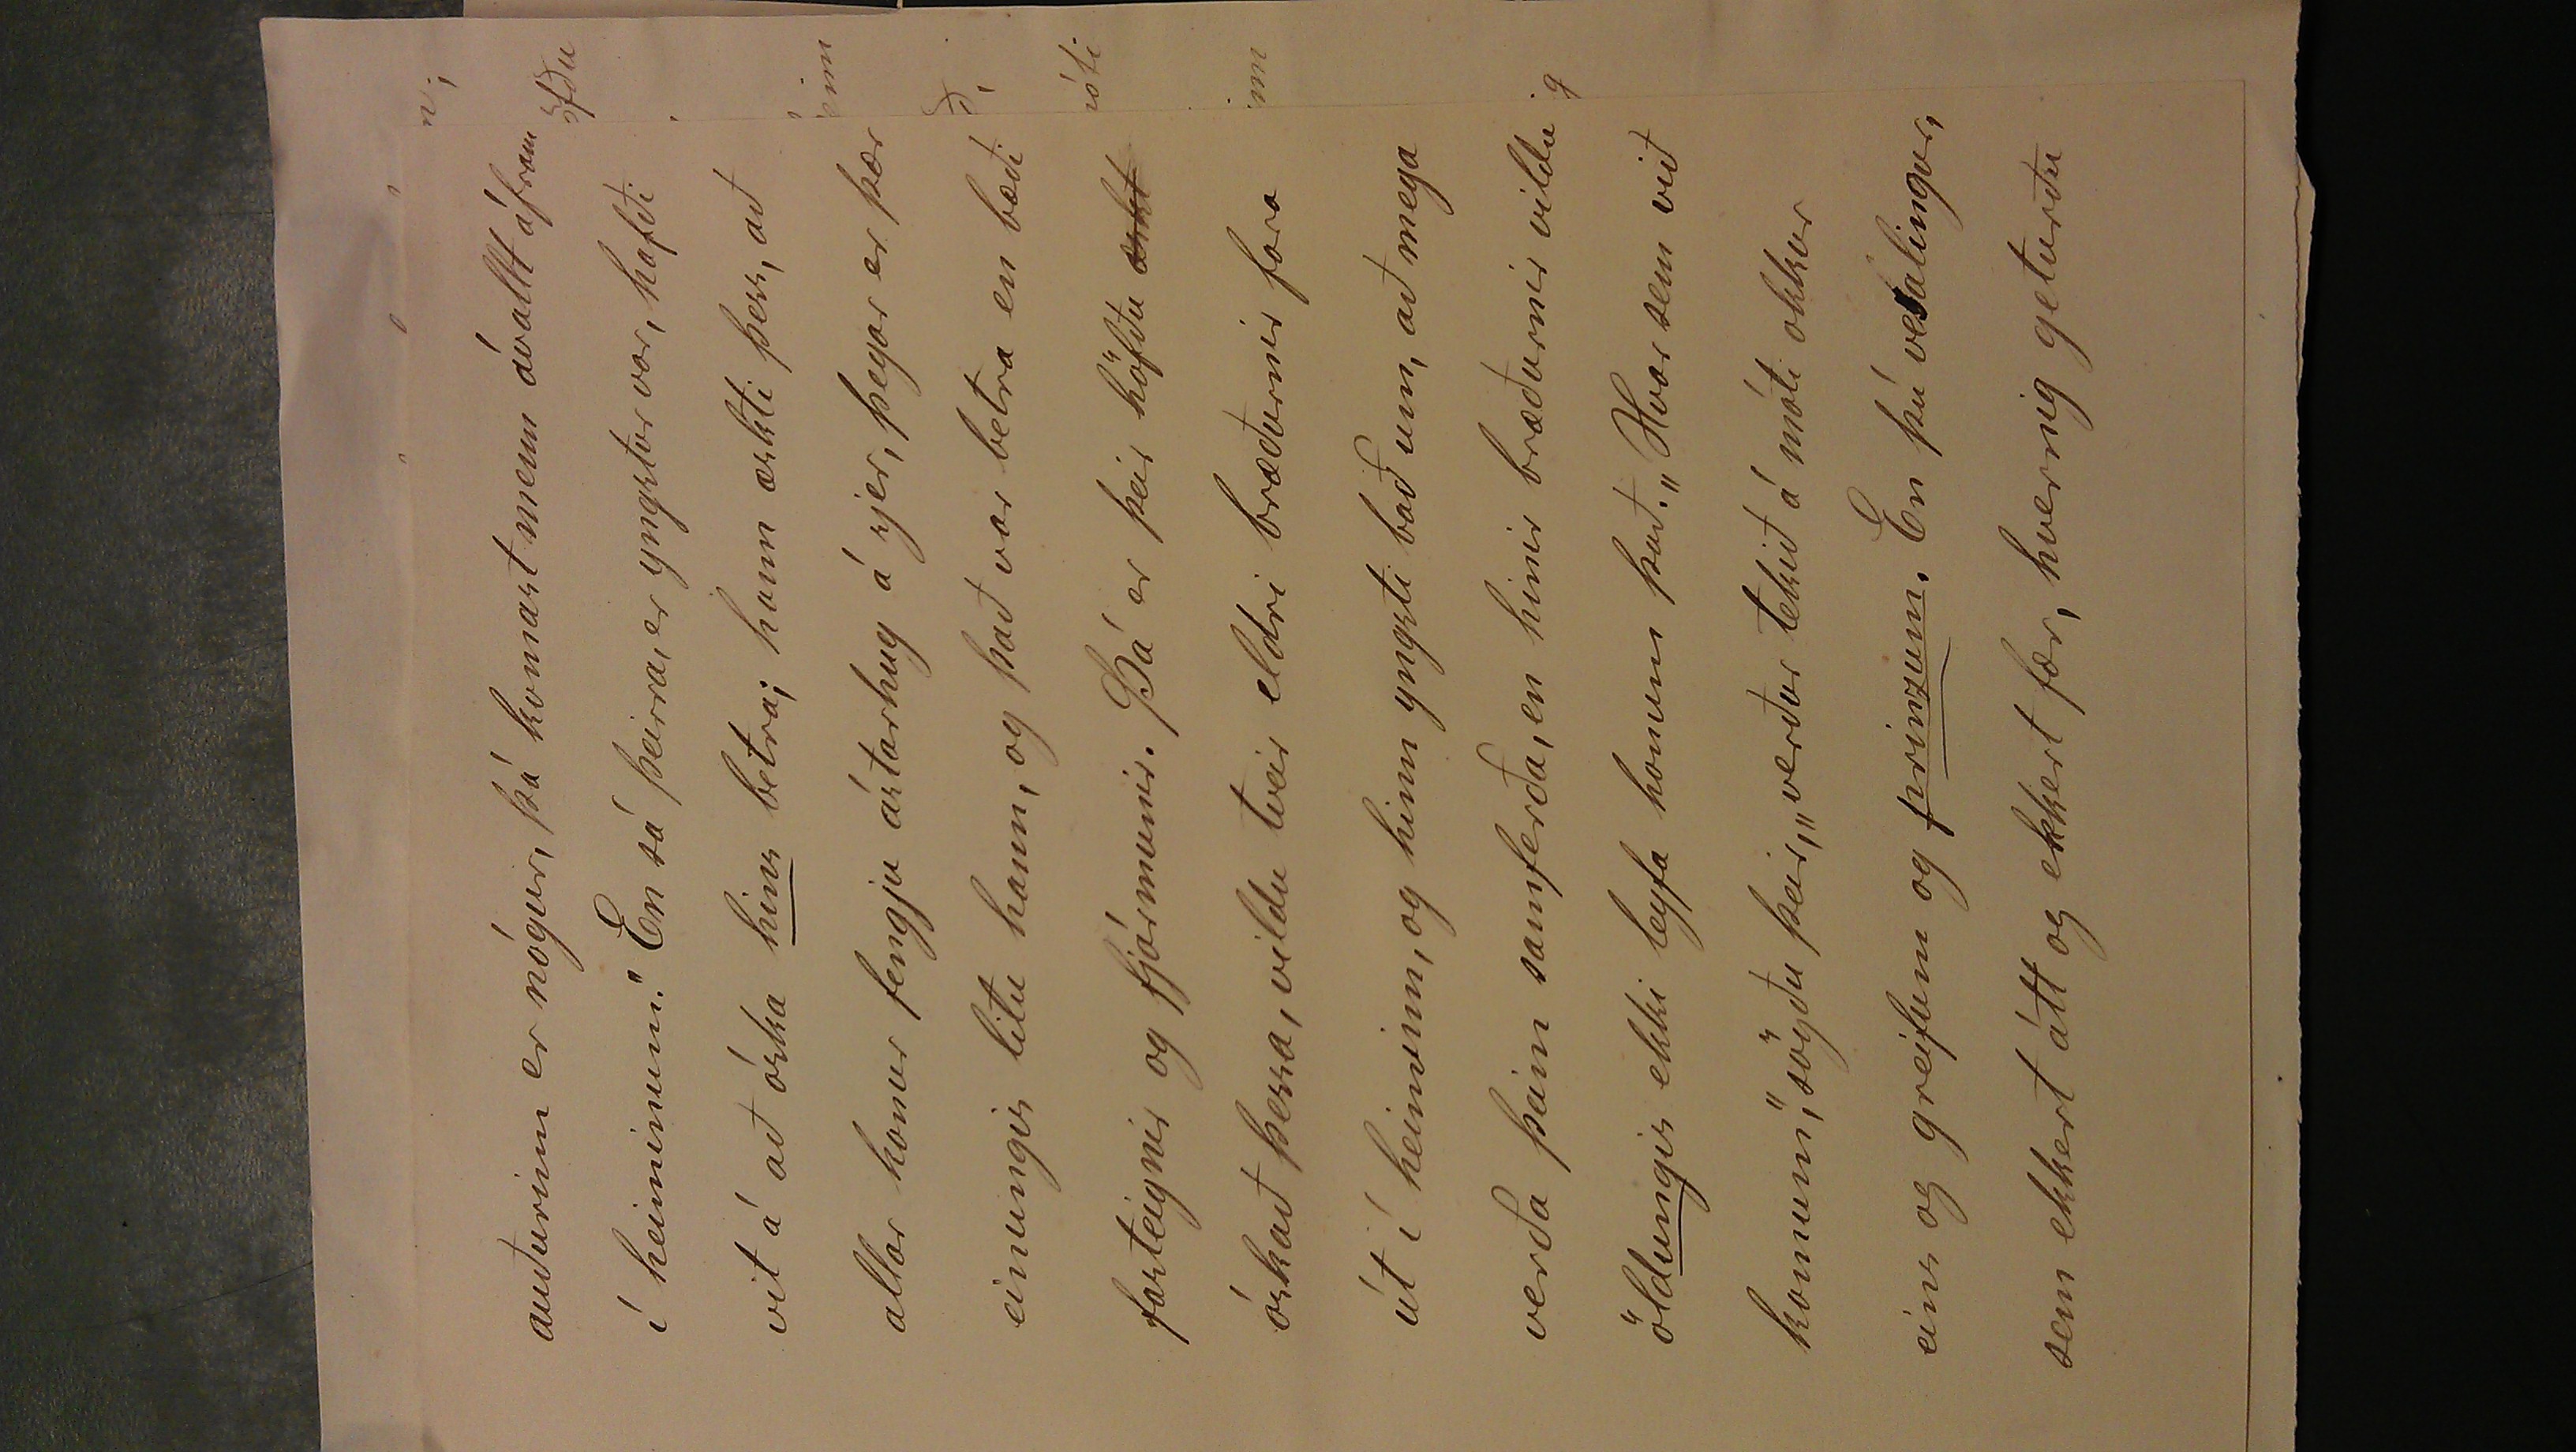 auðurinn er nógur, þá komast menn ávallt áfram
í heiminum." En sá þeirra, er yngstur var, hafði
vit á að óska hins betra; hann æskti þess, að
allar konur fengju ástarhug á sjer, þegar er þær
einungis litu hann, og það var betra en bæði
fasteignir og fjármunir. Þá er þeir höfðu
óskað þessa, vildu tveir eldri bræðurnir fara
út í heiminn, og hinn yngsti bað um, að mega
verða þeim samferða, en hinir bræðurnir vildu
öldungis ekki leyfa honum það. „Hvar sem við
komum," sögðu þeir, „verður tekið á móti okkur
eins og greifum og prinzum. En þú vesalingur,
sem ekkert átt og ekkert fær, hvernig geturðu